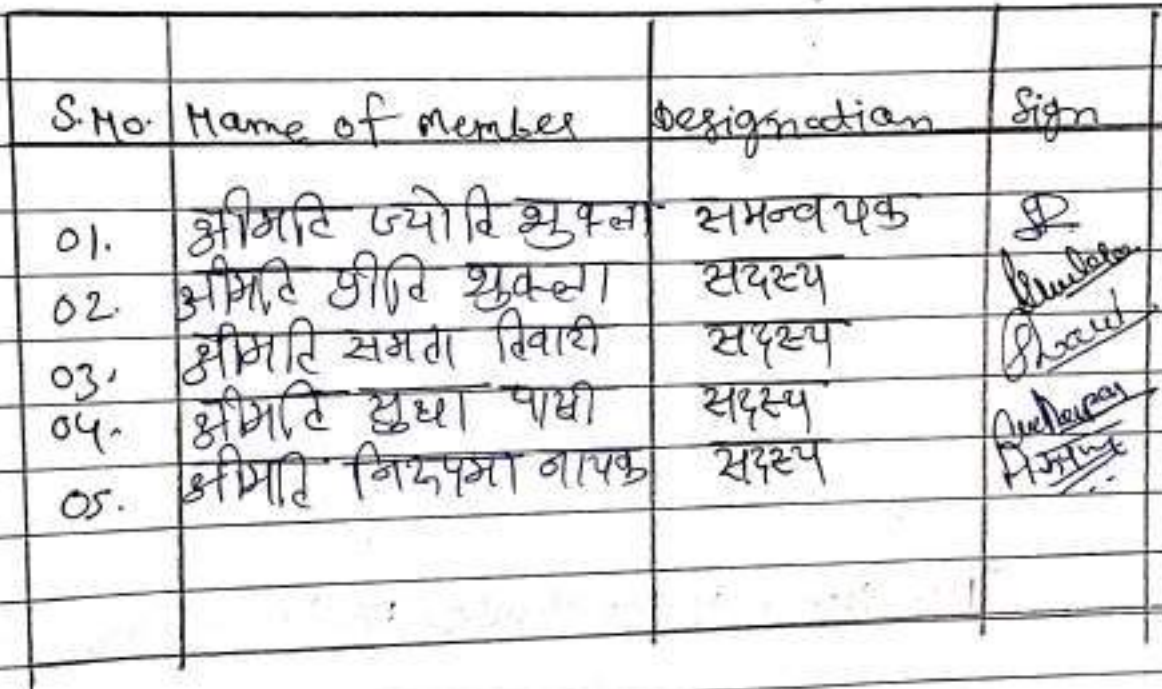 S.No. Name of member Designation Sign
01. श्रीमति ज्योति शुक्ला समन्वयक
02. श्रीमति प्रीति शुक्ला सदस्य
03. श्रीमति समता तिवारी सदस्य
04. श्रीमति सुधा पाषी सदस्य
05. श्रीमति निरुपमा नायक सदस्य